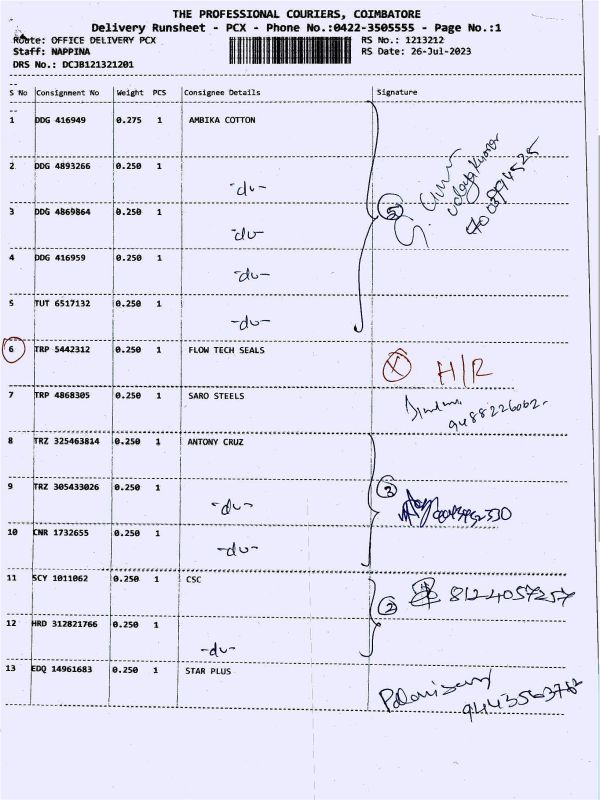 THE PROFESSIONAL COURIERS, COIMBATORE
Delivery Runsheet - PCX - Phone No.:0422-3505555 - Page No.:1
Route: OFFICE DELIVERY PCX RS No.: 1213212
Staff: NAPPINA RS Date: 26-Jul-2023
DRS No.: DCJB121321201
S No Consignment No Weight PCS Consignee Details Signature
1 DDG 416949 0.275 1 AMBIKA COTTON
2 DDG 4893266 0.250 1
-du-
3 DDG 4869864 0.250 1 5
-du-
4 DDG 416959 0.250 1
-du-
5 TUT 6517132 0.250 1
-du-
6 TRP 5442312 0.250 1 FLOW TECH SEALS X H/R
7 TRP 4868305 0.250 1 SARO STEELS
9488226002.
8 TRZ 325463814 0.250 1 ANTONY CRUZ
9 TRZ 305433026 0.250 1 3
-du-
10 CNR 1732655 0.250 1
-du-
11 SCY 1011062 0.250 1 CSC 2 8124057257
12 HRD 312821766 0.250 1
-du-
13 EDQ 14961683 0.250 1 STAR PLUS